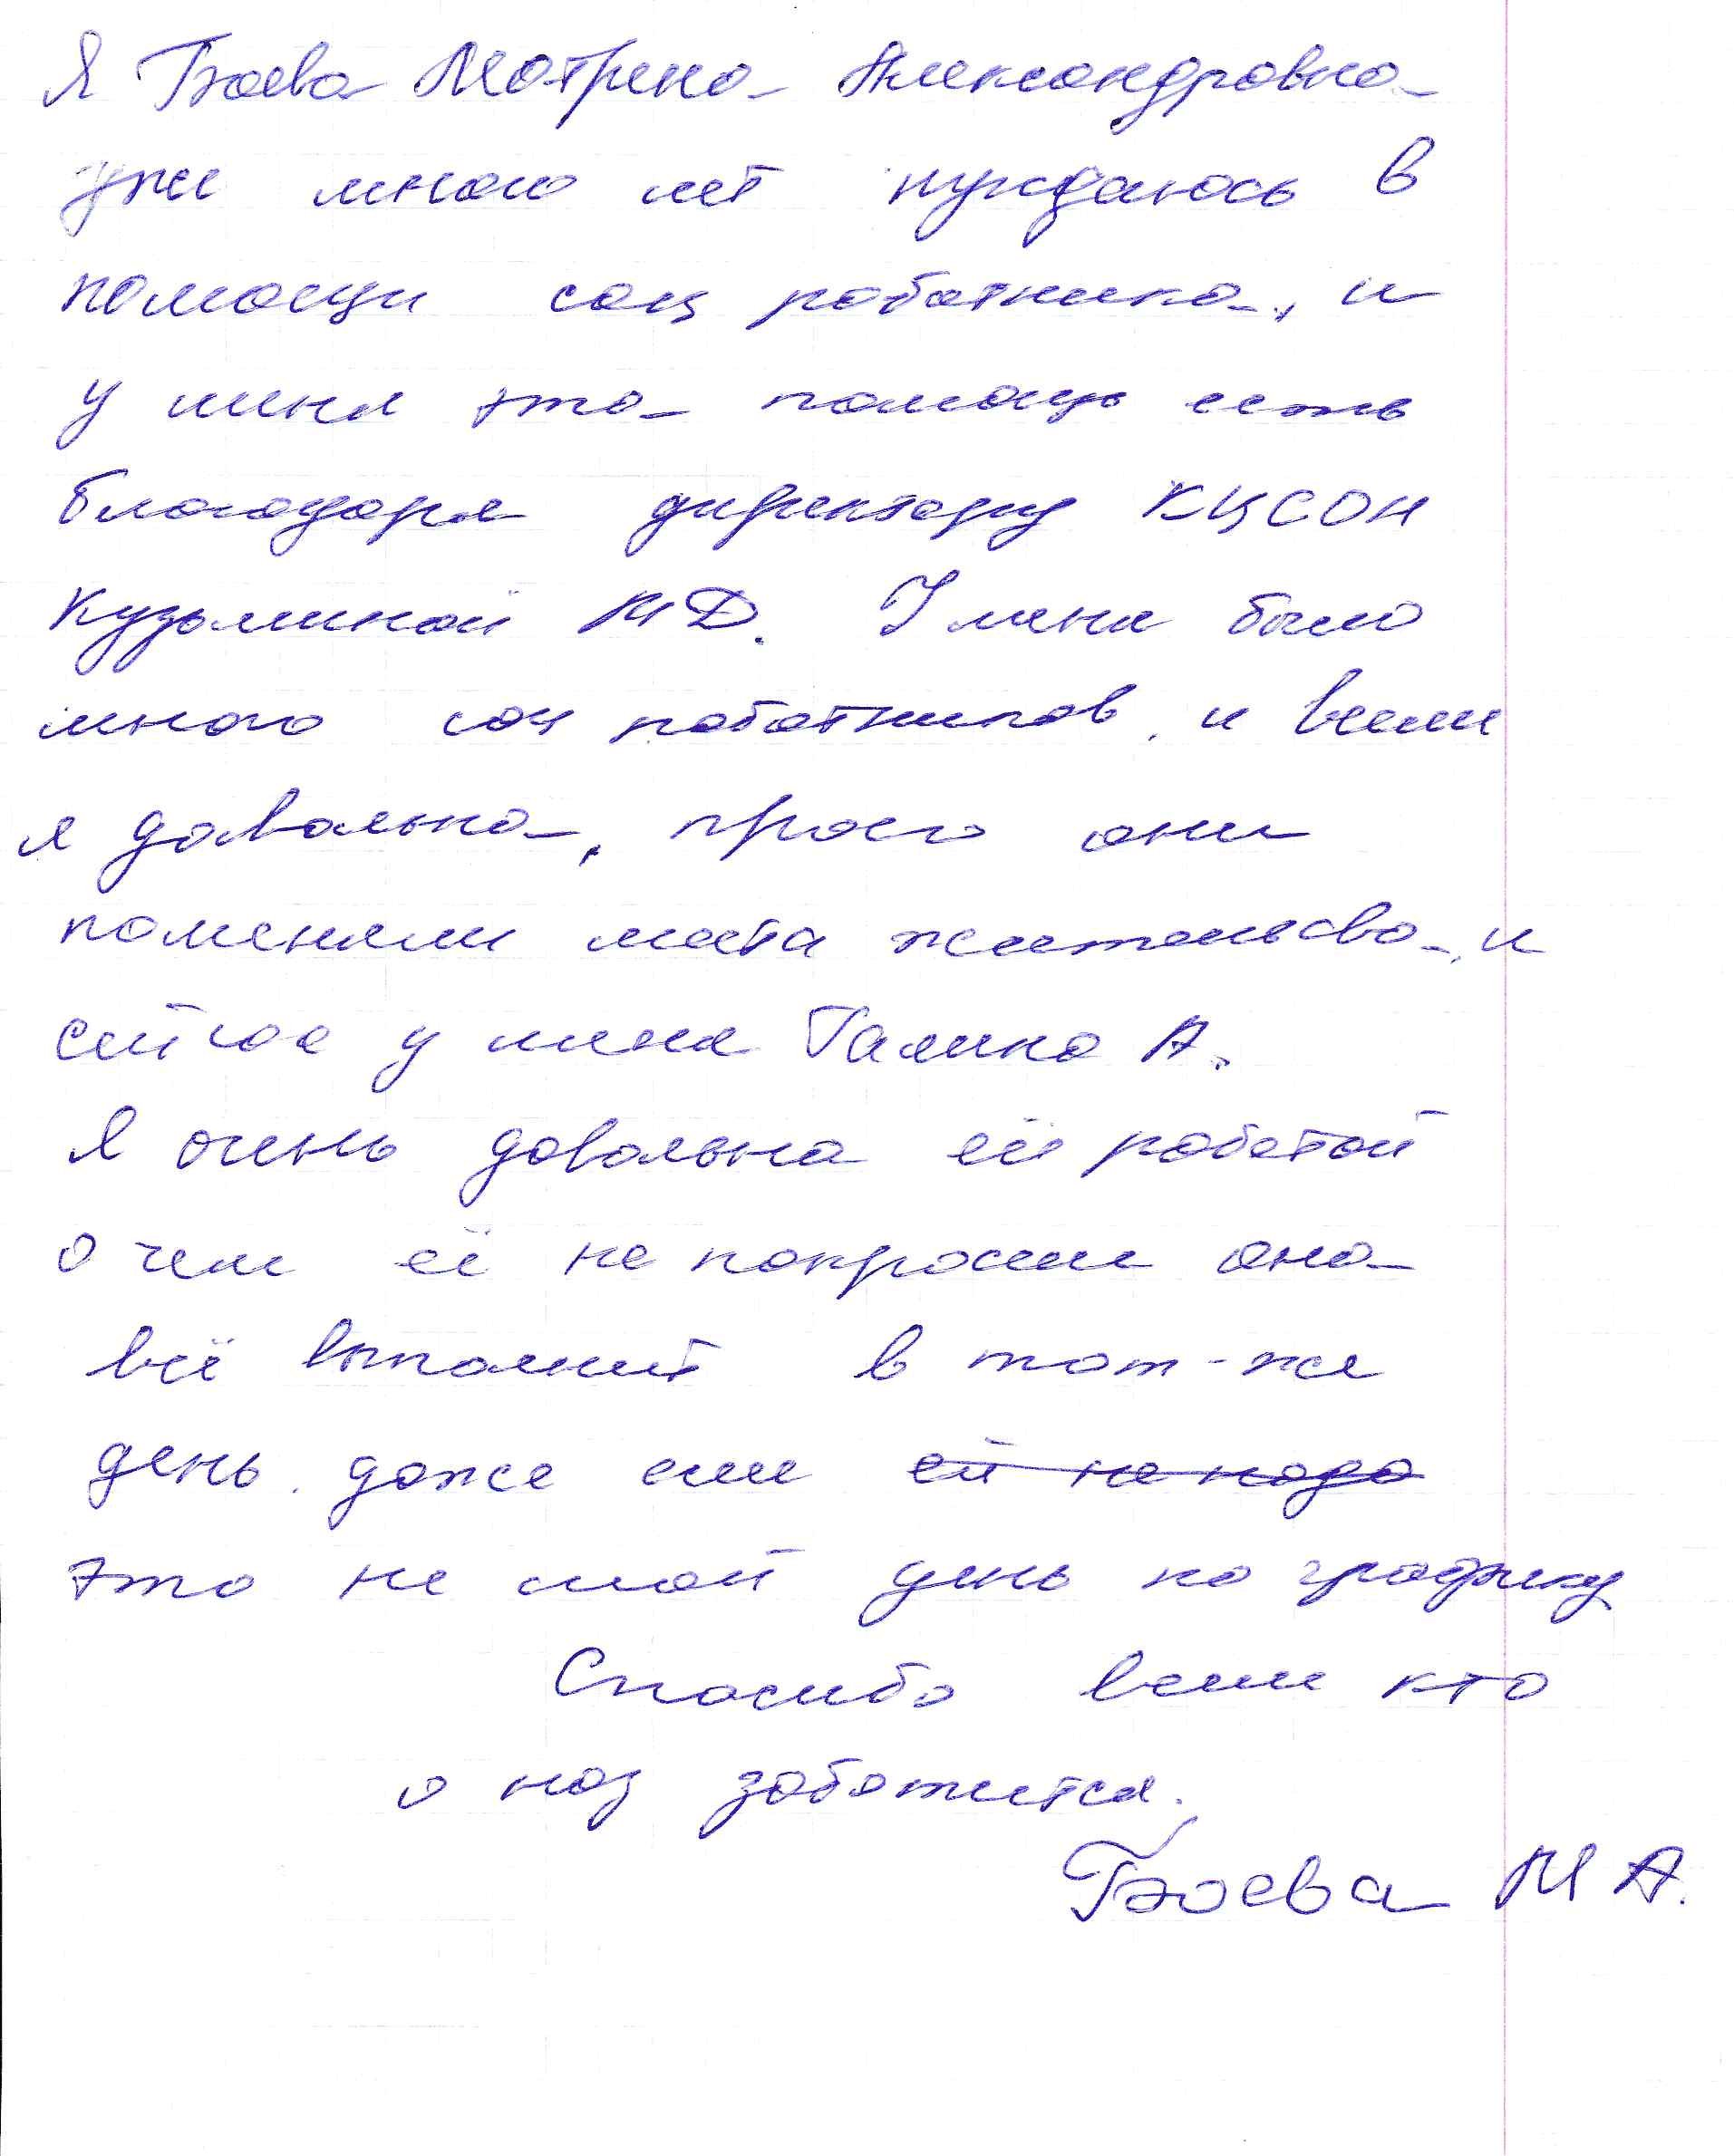 Я Боева Мотрена Александровна
уже много лет нуждаюсь в
помощи соц работника, и
у меня эта помощь есть
благодаря директору КЦСОН
Кузьминой М Д. У меня было
много соц работников, и всеми
я довольна, просо они
поменяли места жительсва, и
сейчас у меня Галина А.
Я очень довольна её работой
о чем её не попросим она
всё выполнит в тот-же
день, даже если ей не надо
это не мой день по графику
Спасибо всем кто
о наз заботится.
Боева М А.